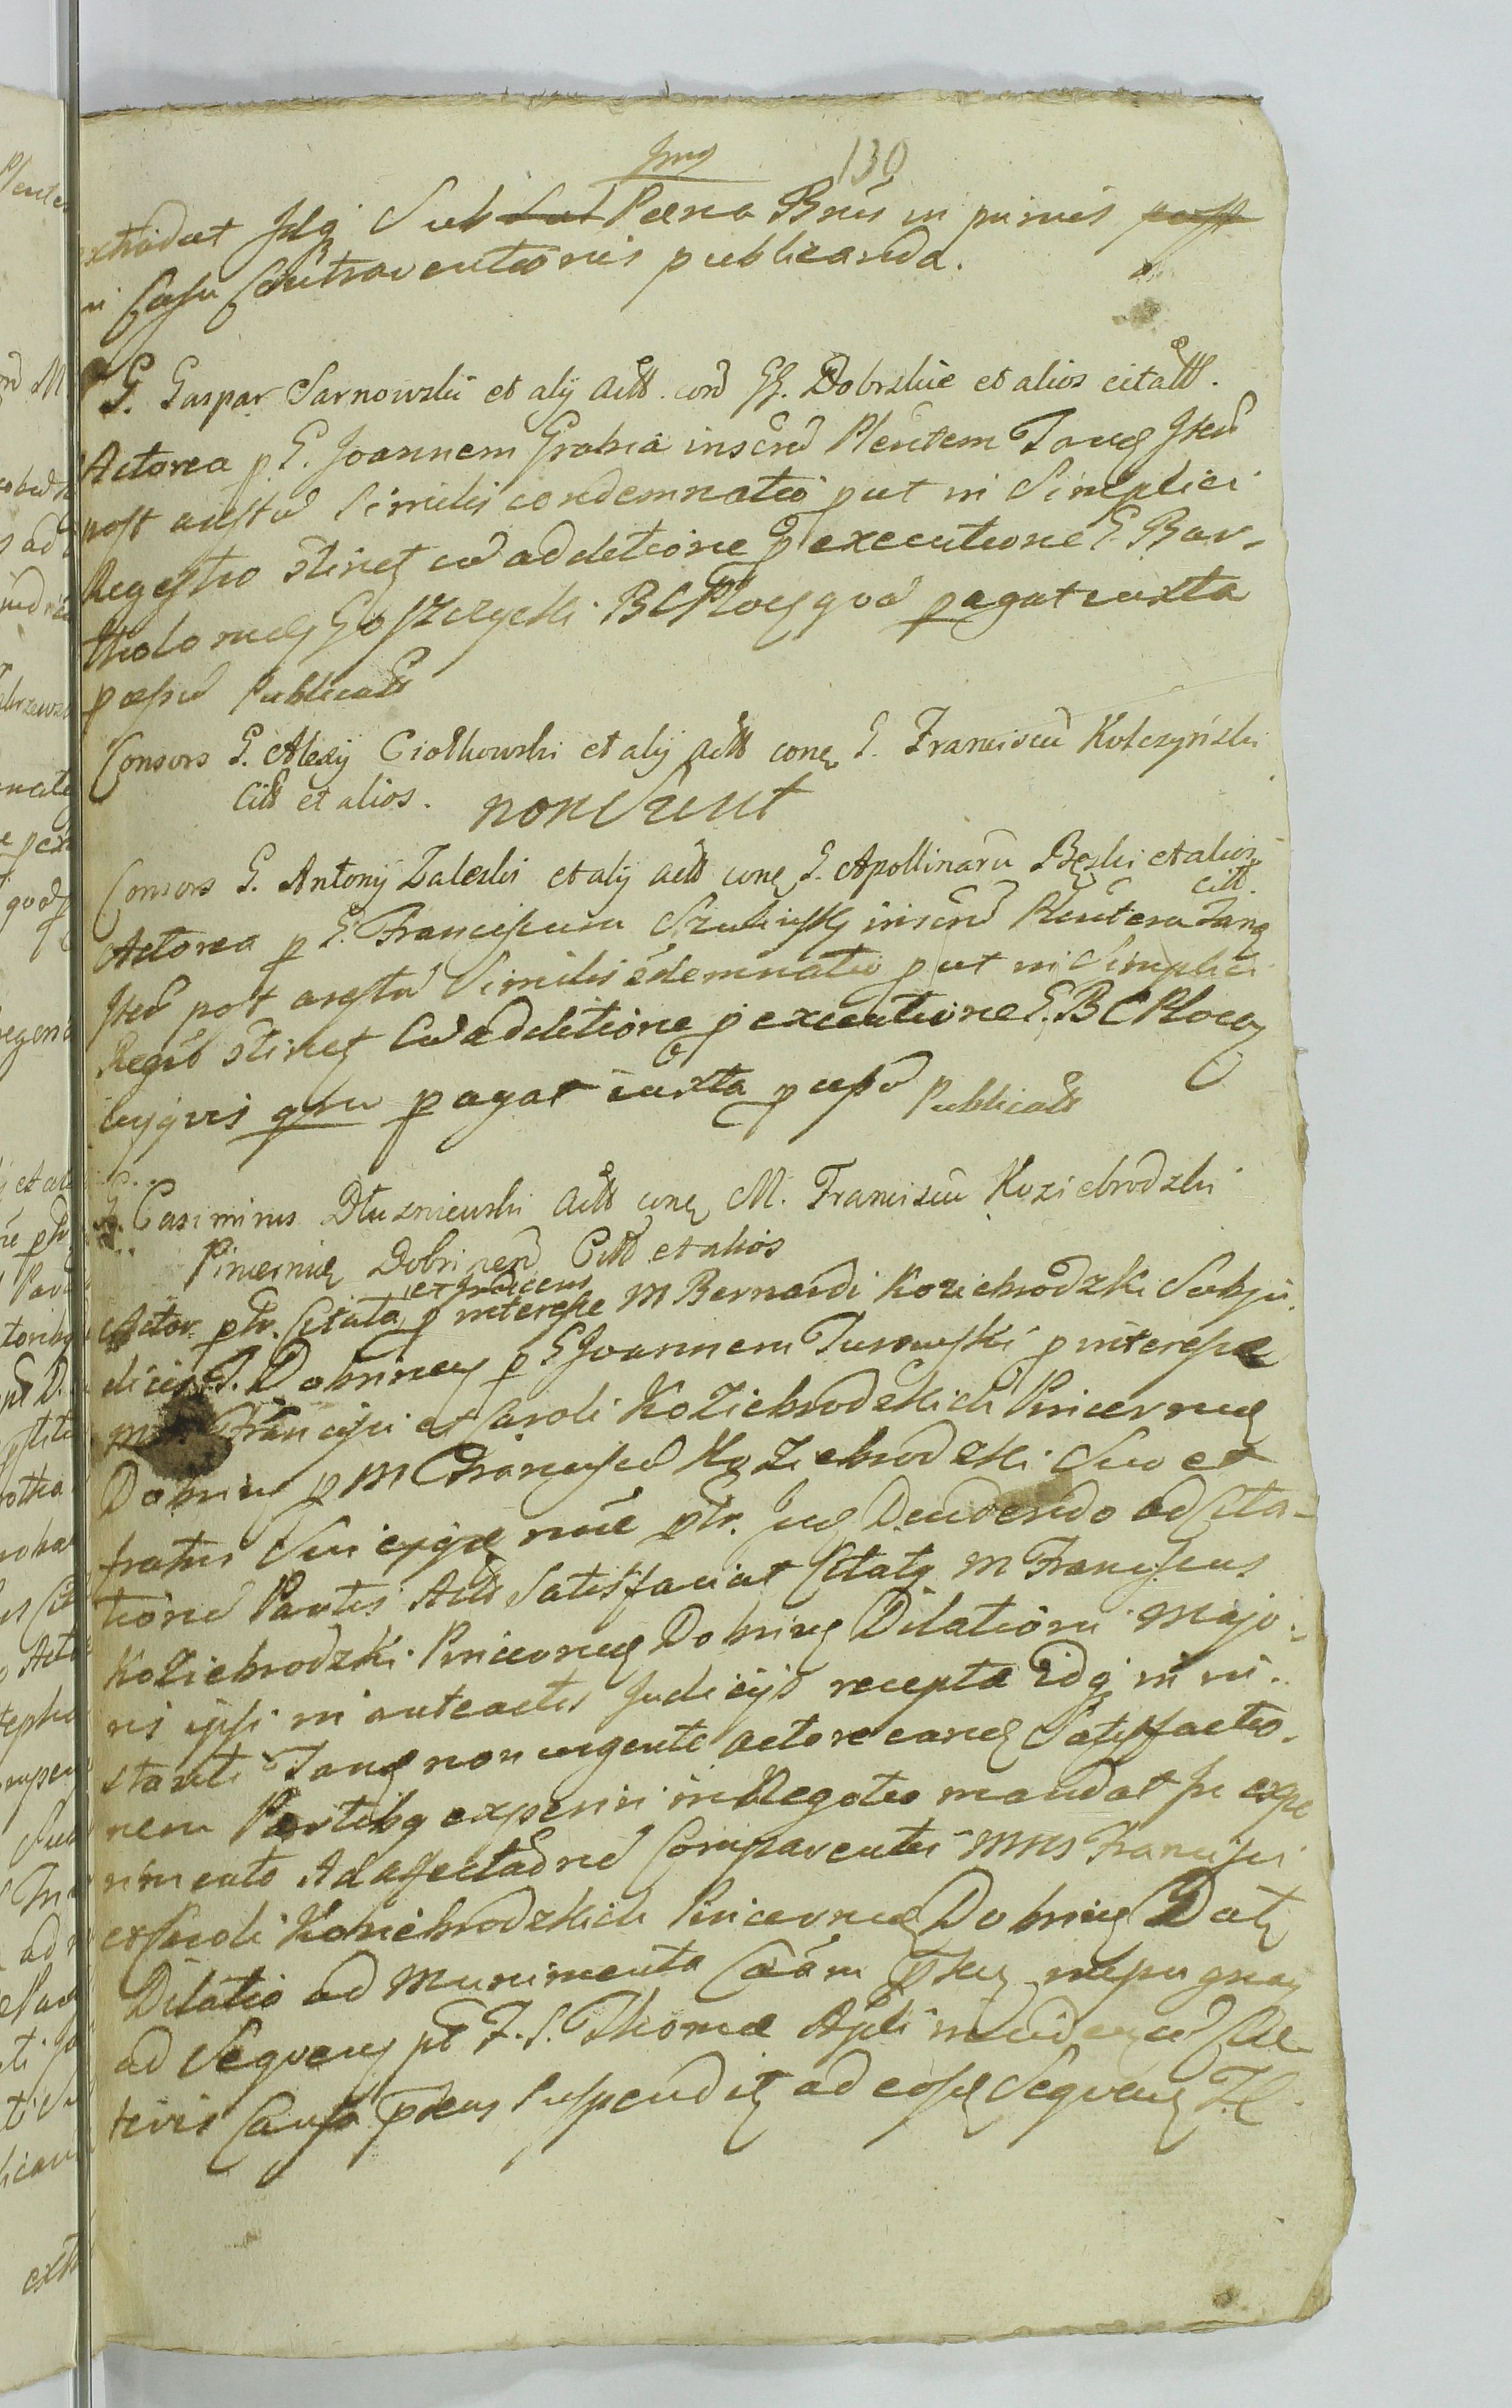 130
extradat Idq Sub Sub Pœna Bnis in primis post
in Casu Contraventionis publicanda.
G. Gaspar Sarnowski et alij actt. con GG. Dobrskie et alios citatt.
Actorea p G. Joannem Grabia inscrd Plentem Tanq
post arestu Similis condemnatio put in Simplici
Regestro stinet cu additione p executione G. Bar-
tholomeg Goszczycki BCPlocg quod pagat iuxta
pœsu Publicatt
Consors G. Alexij Ciołkowski et alij actt cone G. Franciscu Kolczyński
Citt et alios. non Sunt
Consors G. Antonij Zaleski et alij actt cone G. Apollinaru Bęski et alios
citt.
Actorea p G. Franciscum inscrd Plentem Tanq
post arestu Similis cdemnatio put in Simplici
Regro stinet Cu additione p executione G. BCPlocg
cujqvis pagat iuxta pœsu Publicatt
G. Casimirus Dłuzniewski actt cone M. Franciscu Koziebrodzki
Pincernie Dobrinen Citt et alios
et Judicens
Actor ptr. Citata p interesse M Bernardi Koziebrodzki Subju
dicis T. Dobrineg p G Joannem Turowski p interesse
MM Francisci et Caroli Koziebrodzkich Pincernie
Dobrine p M Franciscu Koziebrodzki Suo et
fratris Sui ejqe noie ptr. Jud Decidendo ad Cita-
tione Partis Actt Satisfaciat Citatq M Franciscus
Koziebrodzki Pincerne Dobrine Dilationi majo-
ris ipsi in anteactis Judicijs recepta Idq in in-
stanti Tanq non urgente actore eane Satisfactio-
nem Partibq experiri in Negotio mandat In expe
rimento Ad affectadne Comparentis MMS Francisci
et Caroli Koziebrodzkich Pincerne Dobrine Datq
Dilatio ad Munimenta Caam ptne
ad Seqveng pt F. S. Thomæ Apli
teris Causa ptens Suspendit ad eose Seqveng T.